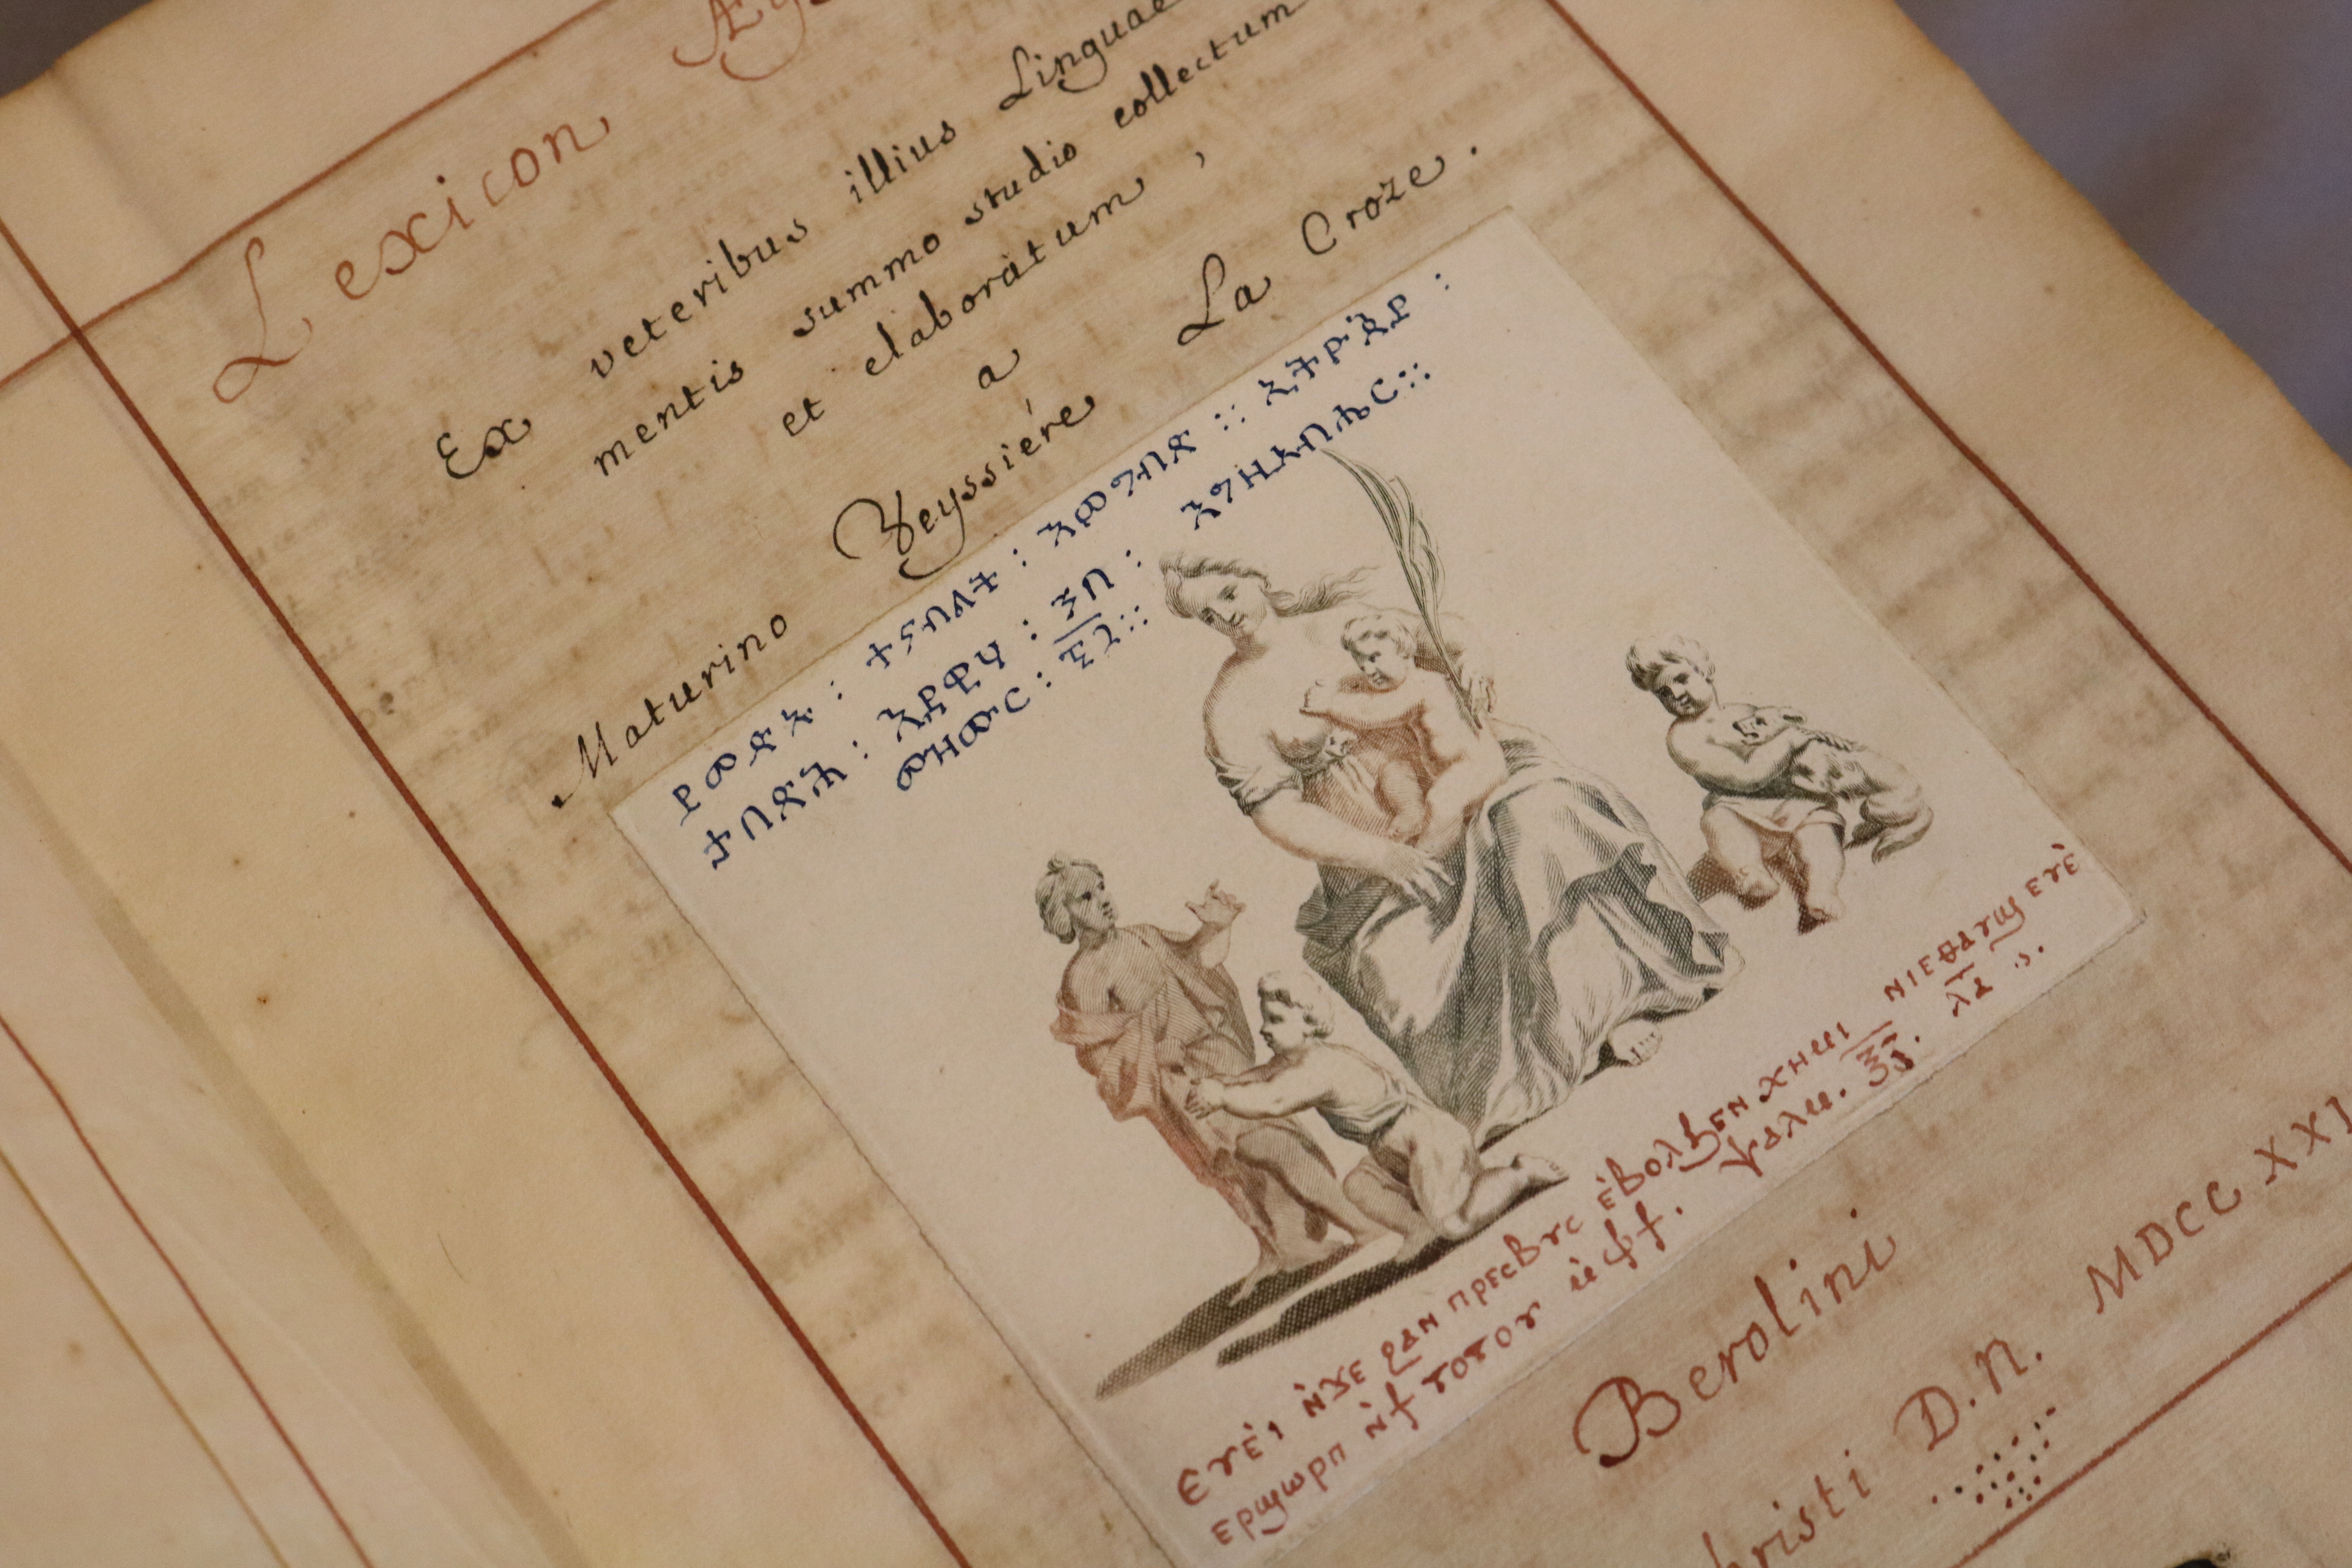 Lexicon
Ex veteribus illius Linguae
mentis summo studio collectum
et elaboratum,
a
Maturino Veyssiére La Croze.
ይመጽኡ : ተናብልት : እምግብጽ :: ኢትዮጵያ :
ታበጽሕ : እደዊሃ : ኀበ : እግዚአብሔር ::
መዝሙር : ፷፯ ::
Ⲉⲩⲉ̀ⲓ ⲛ̀ϫⲉ ϩⲁⲛ ⲡⲣⲉⲥⲃⲩⲥ ⲉ̀ⲃⲟⲗϧⲉⲛ ⲭⲏⲙⲓ ⲛⲓⲉⲑⲁⲩϣ ⲉⲩⲉ̀
ⲉⲣϣⲱⲣⲡ ⲛ̀ϯ ⲧⲟⲧⲟⲩ ⲙ̀ⲫϯ. ⲯⲁⲗⲙ. ⲝ̅ⲍ̅. ⲗ̅ⲁ̅
Berolini
hristi D.N. MDCCXXI